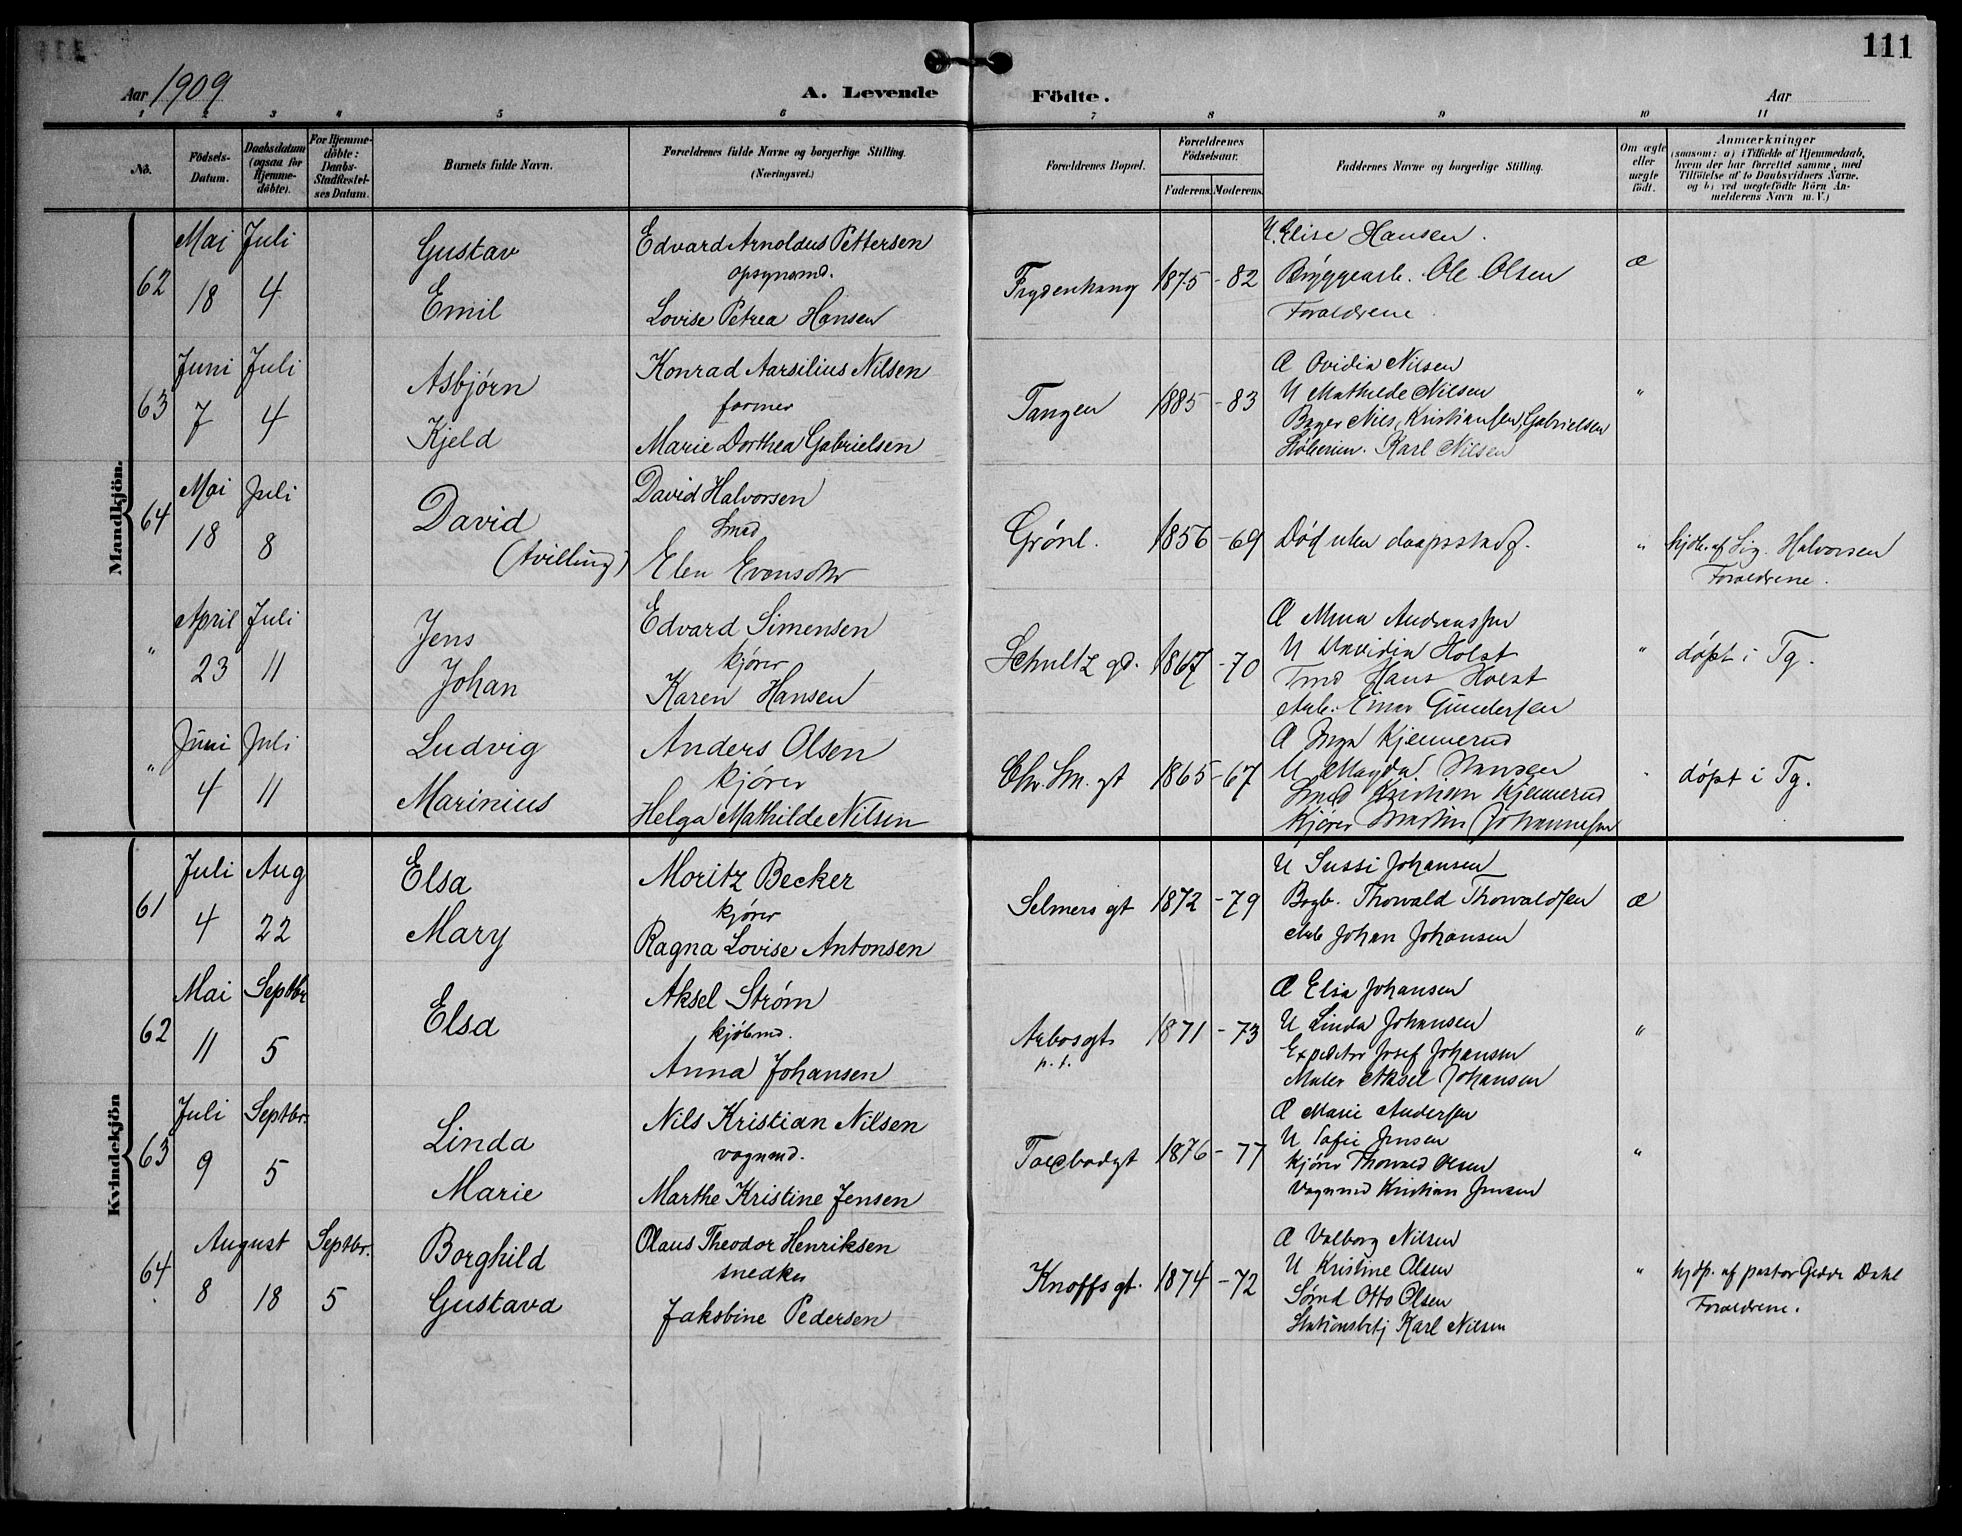 111
Aar 1909
A. Levende Födte.
Aar
1 2 3 4 5 6 7 8 9 10 11
No.
Födsels-Datum.
Daabsdatum (ogsaa for Hjemme-döbte).
For Hjemme-döbte: Daabs-Stadfæstel-ses Datum.
Barnets fulde Navn.
Forældrenes fulde Navne og borgerlige Stilling. (Næringsvei.)
Forældrenes Bopæl.
Forældrenes Födselsaar.
Faderens. Moderens.
Faddernes Navne og borgerlige Stilling.
Om ægte eller uægte födt.
Anmærkninger
(saasom: a) i Tilfælde af Hjemmedaab,
hvem der har forrettet samme, med
Tilföielse af to Daabsvidners Navne.
og b) ved uægtefödte Börn An-
melderens Navn m. V.)
Mandkjön.
62
Mai 18
Juli 4
Gustav
Emil
Edvard Arnoldus Pettersen
opsynsmd.
Lovise Petrea Hansen
Frydenhaug
1875 - 82
U. Elise Hansen.
Bryggearb. Ole Olsen
Forældrene
æ
63
Juni 7
Juli 4
Asbjørn
Kjeld
Konrad Aarsilius Nilsen
former
Marie Dorthea Gabrielsen
Tangen
1885 - 83
Æ Ovidia Nilsen
U Mathilde Nilsen
Bager Nils Kristiansen, Gabrielsen
Karl Nilsen
"
64
Mai 18
Juli 8
David
(tvilling)
David Halvorsen
Smed
Elen Evensdtr
Grønl.
1856 - 69
Død uten daapsstadf.
"
hjdb. af Sig. Halvorsen
Forældrene.
"
April 23
Juli 11
Jens
Johan
Edvard Simensen
kjører
Karen Hansen
Schultz gd.
1867 - 70
Æ Mina Andreassen
U Davidia Holst
Tmd Hans Holst
Arb. Einar Gundersen
"
døpt i Tg.
"
Juni 4
Juli 11
Ludvig
Marinius
Anders Olsen
kjører
Helga Mathilde Nilsen
Chr. Sm. gt
1865 - 67
Æ Inga Kjennerud
U Magda Hansen
Smed Kristian Kjennerud
Kjører Martin Johannesen
"
døpt i Tg.
Kvindekjön
61
Juli 4
Aug 22
Elsa
Mary
Moritz Becker
kjører
Ragna Lovise Antonsen
Selmers gt
1872 - 79
U Sussi Johansen
Bogb. Thorvald Thorvaldsen
Arb Johan Johansen
æ
62
Mai 11
Septbr 5
Elsa
Aksel Strøm
kjøbmd.
Anna Johansen
Arbosgt.
p. t.
1871 - 73
Æ Elsa Johansen
U Linda Johansen
Expeditør Josef Johansen
Maler Aksel Johansen
"
63
Juli 9
Septbr. 5
Linda
Marie
Nils Kristian Nilsen
vognmd.
Marthe Kristine Jensen
Toldbodgt
1876 - 77
Æ Marie Andersen
U Sofie Jensen
kjører Thorvald Olsen
Vognmd Kristian Jensen
"
64
August 8
18
Septbr. 5
Borghild
Gustava
Olaus Theodor Henriksen
snedker
Jakobine Pedersen
Knoffs gt.
1874 - 72
Æ Valborg Nilsen
U Kristine Olsen
Sømd Otto Olsen
Stationsbetj Karl Nilsen
"
hjdp. af pastor Gedde Dahl
Forældrene.